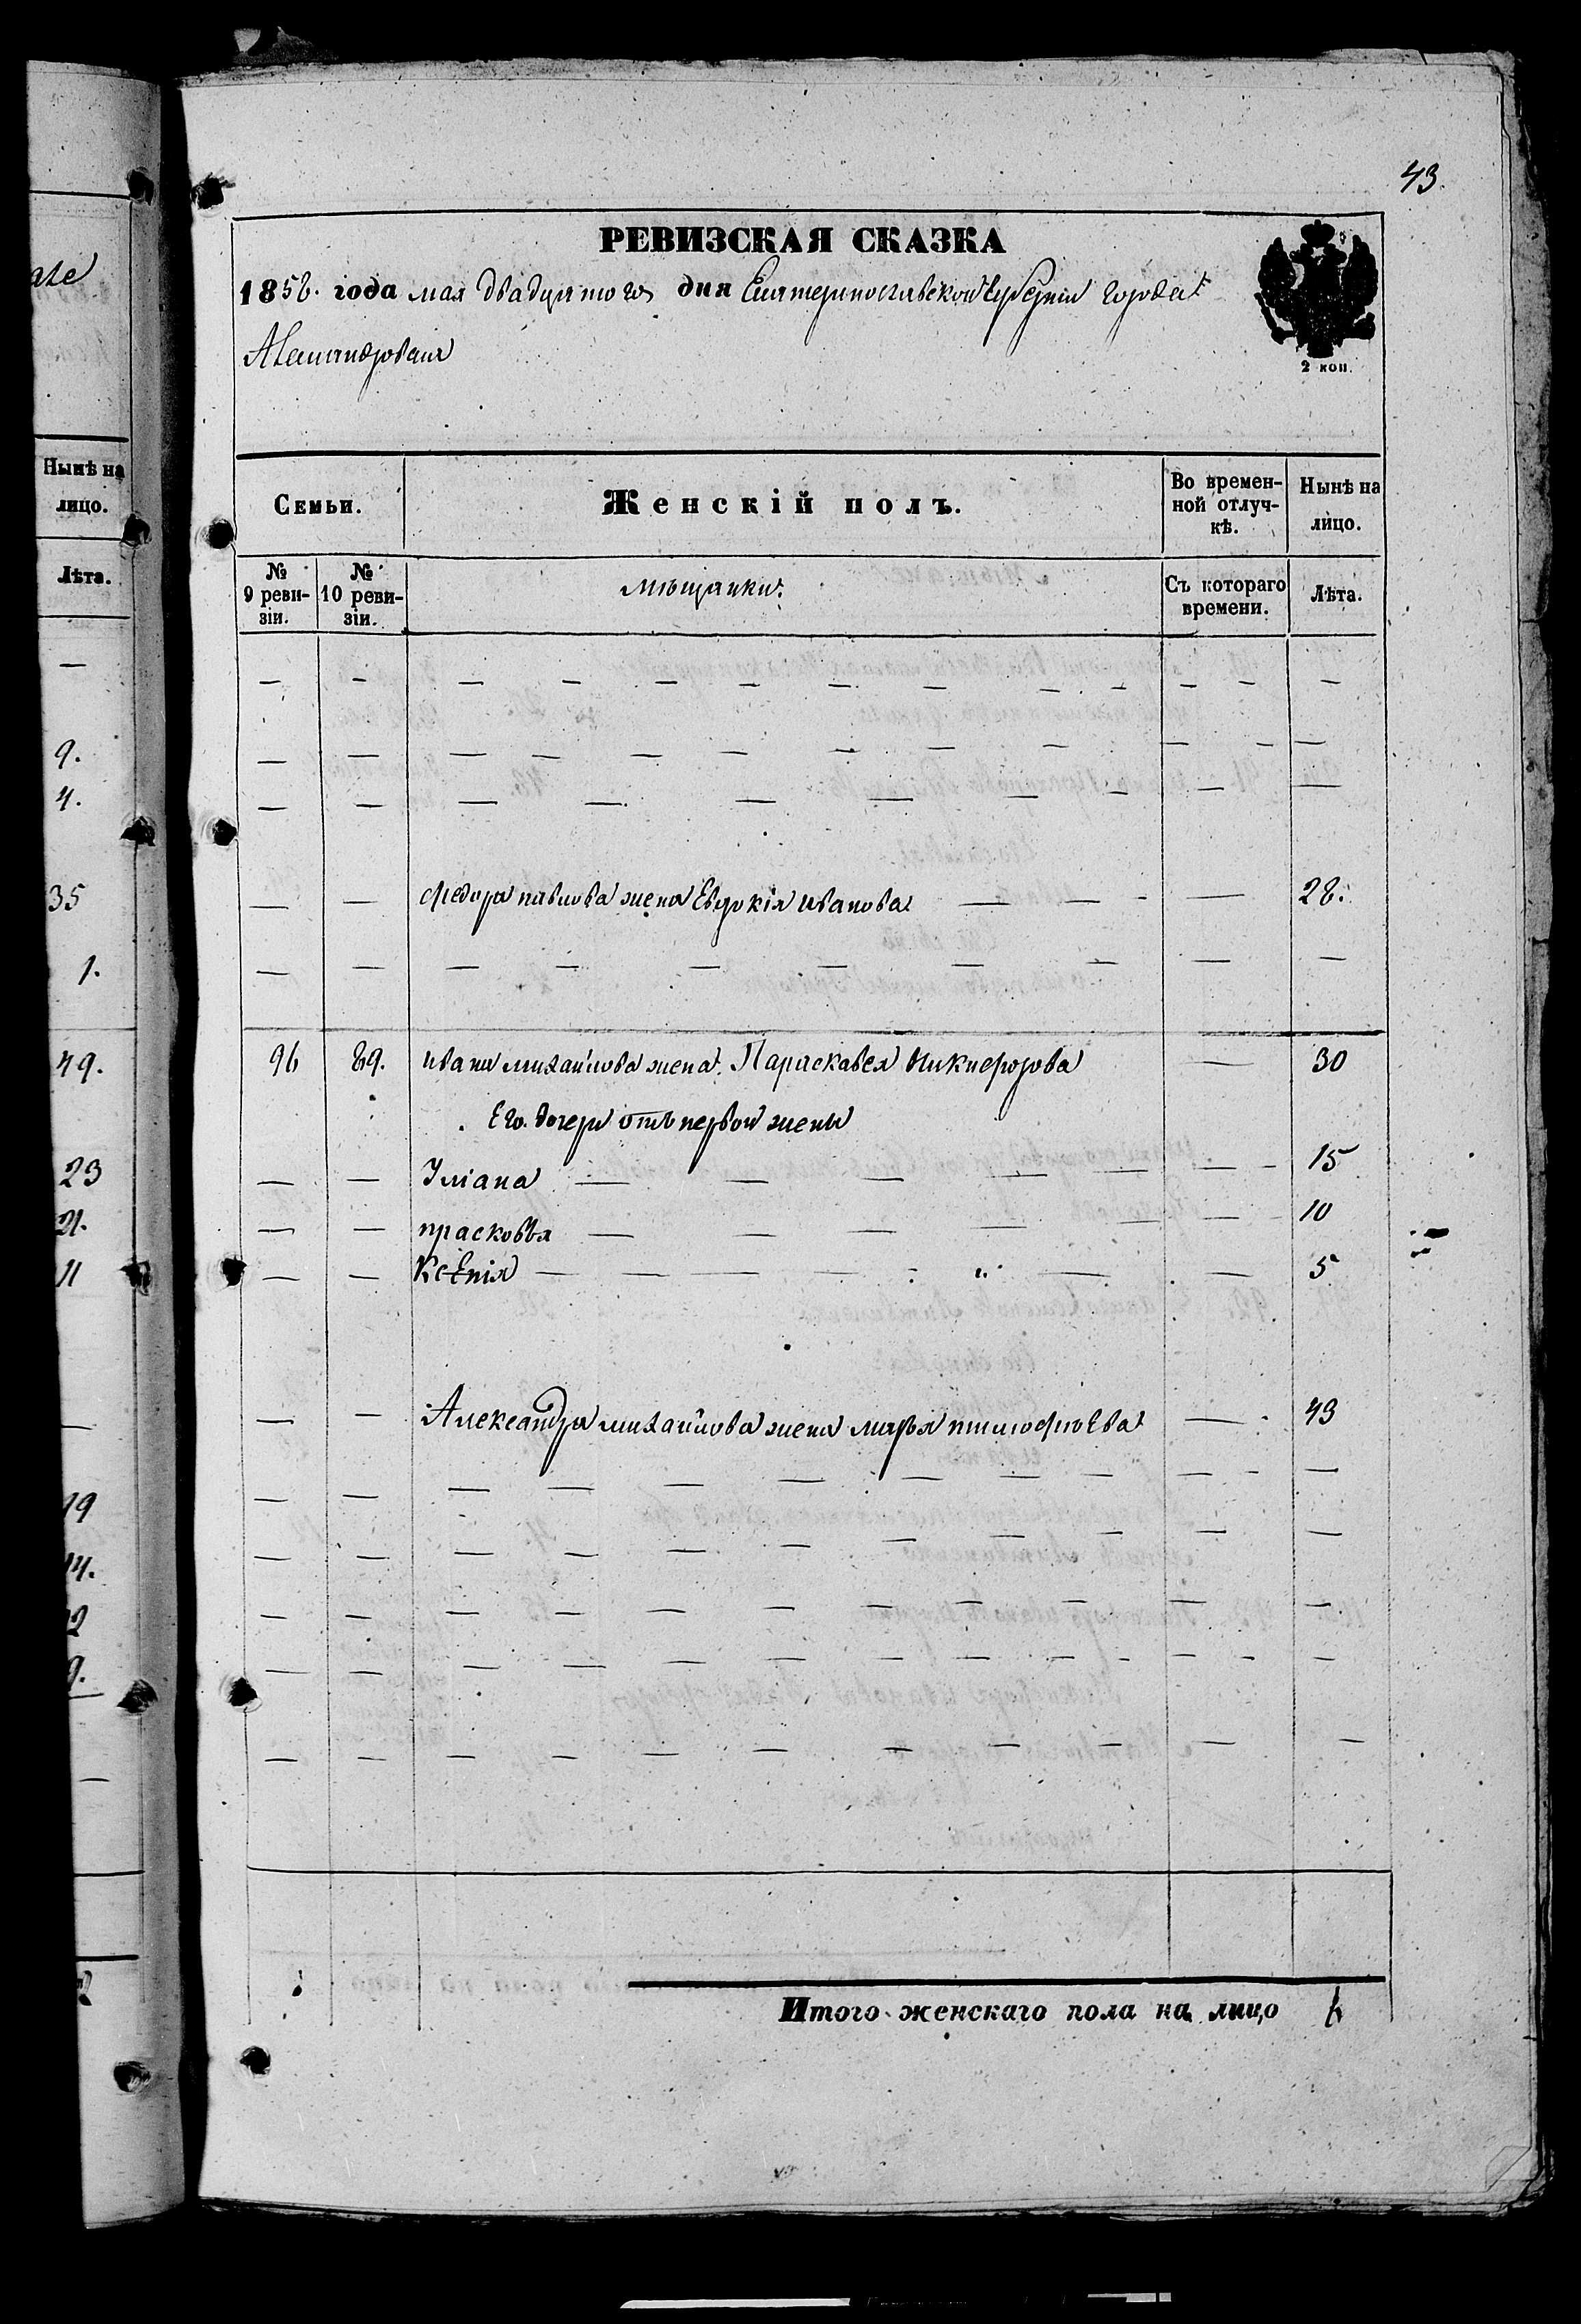 43.
РЕВИЗСКАЯ СКАЗКА
1858. года мая двадцятого дня Екатеринославской губерніи города
Александровска
2 коп.
Семьи.
Женскій полъ.
Во времен-
ной отлуч-
кѣ.
Нынѣ на
лицо.
№
9 реви-
зіи.
№
10 реви-
зіи.
мѣщанки.
Съ котораго
времени.
Лѣта.
федора павлова жена Евдокія иванова 28.
96 89. ивана михайлова жена Параскавея Никифорова 30
Его дочери отъ первой жены
Уліана 15
прасковья 10
Ксенія 5
Александра михайлова жена марья 43
Итого женскаго пола на лицо 6
Нынѣ на
лицо.
Лѣта.
9.
4.
35
1.
49.
23
21.
11
19
14.